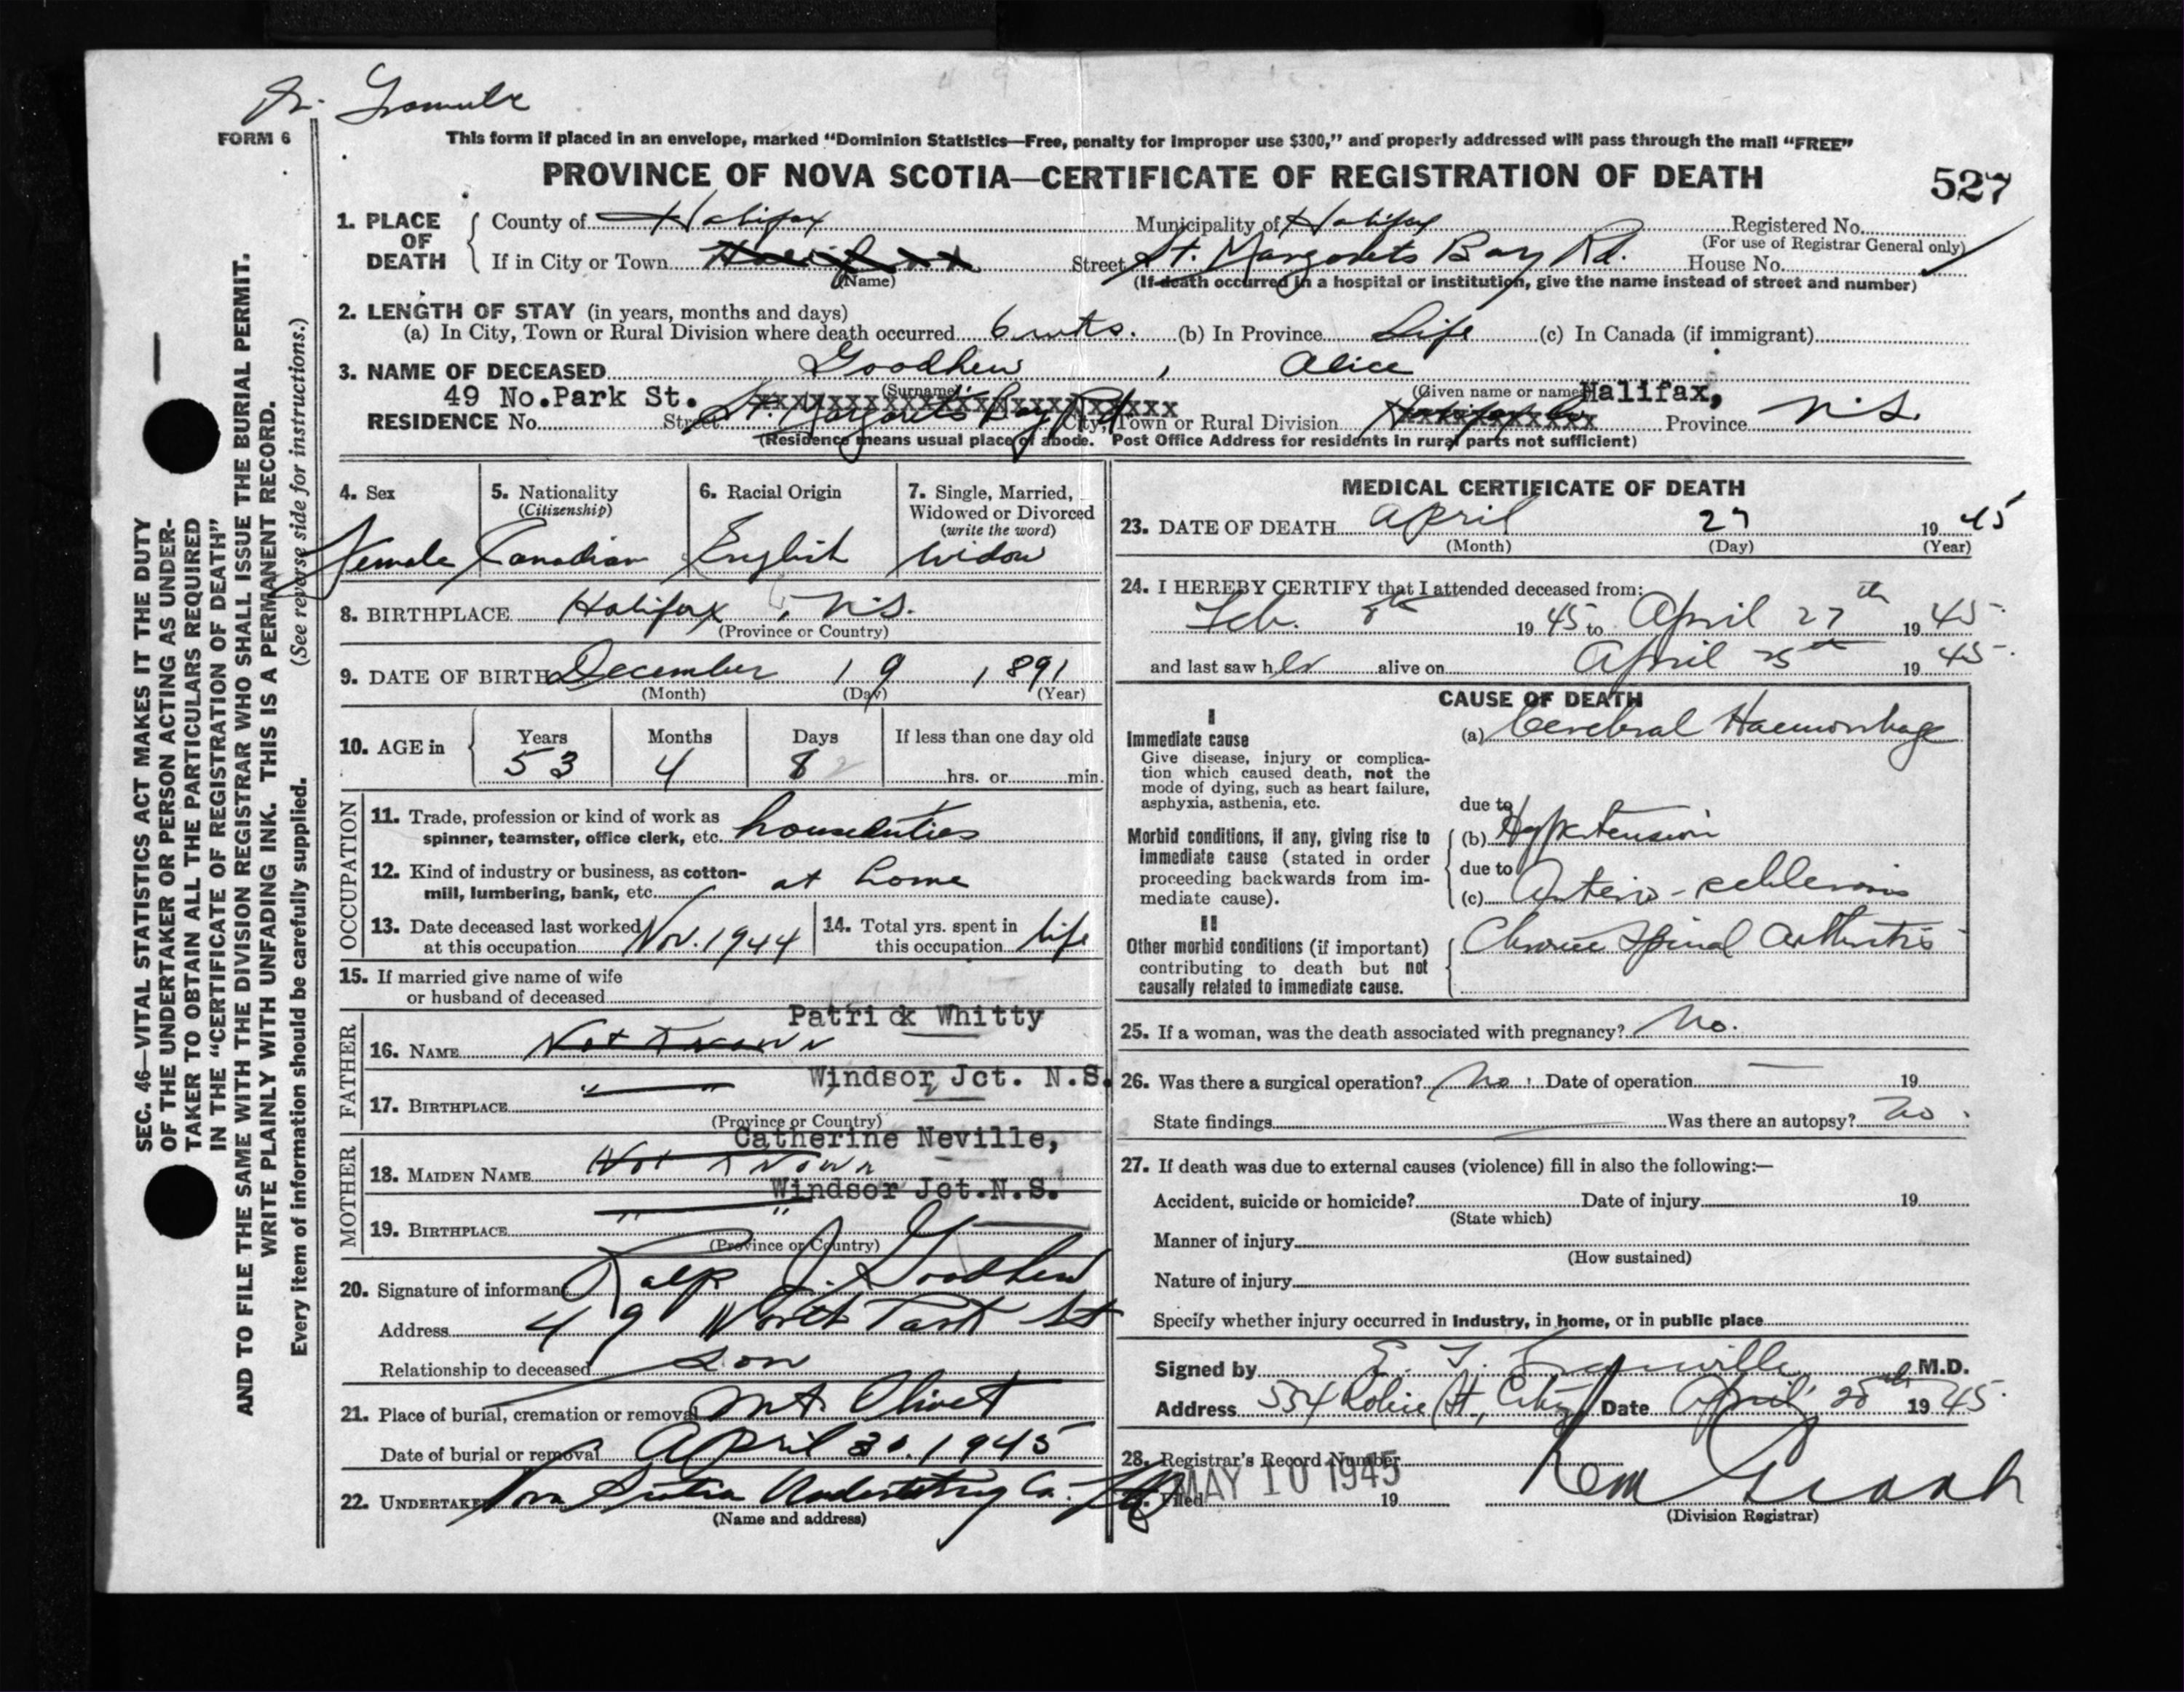 Dr. Granville
FORM 6
This form if placed in an envelope, marked “Dominion Statistics—Free, penalty for improper use $300,” and properly addressed will pass through the mail “FREE”
PROVINCE OF NOVA SCOTIA—CERTIFICATE OF REGISTRATION OF DEATH
527
1. PLACE OF DEATH { County of Halifax Municipality of Halifax Registered No.
(For use of Registrar General only)
If in City or Town Halifax Street St. Margarets Bay Rd. House No.
(Name) (If death occurred in a hospital or institution, give the name instead of street and number)
2. LENGTH OF STAY (in years, months and days)
(a) In City, Town or Rural Division where death occurred 6 mths. (b) In Province Life (c) In Canada (if immigrant)
3. NAME OF DECEASED Goodhew, Alice
(Surname) (Given name or names)
49 No.Park St. xxxxxxxxxxxxxxxxxxxxxxx Halifax,
RESIDENCE No. Street St Margarets Bay Rd City, Town or Rural Division Province N.S.
(Residence means usual place of abode. Post Office Address for residents in rural parts not sufficient)
4. Sex
Female
5. Nationality
(Citizenship)
Canadian
6. Racial Origin
English
7. Single, Married,
Widowed or Divorced
(write the word)
Widow
8. BIRTHPLACE Halifax, N.S.
(Province or Country)
9. DATE OF BIRTH December 19, 1891
(Month) (Day) (Year)
10. AGE in { Years Months Days If less than one day old
53 4 8 hrs. or min.
OCCUPATION
11. Trade, profession or kind of work as
spinner, teamster, office clerk, etc. houseduties
12. Kind of industry or business, as cotton-
mill, lumbering, bank, etc. at home
13. Date deceased last worked
at this occupation Nov. 1944
14. Total yrs. spent in
this occupation life
15. If married give name of wife
or husband of deceased
FATHER
Patrick Whitty
16. NAME Not Known
Windsor Jct. N.S.
17. BIRTHPLACE " "
(Province or Country)
MOTHER
Catherine Neville,
18. MAIDEN NAME Not Known
Windsor Jct.N.S.
19. BIRTHPLACE " "
(Province or Country)
20. Signature of informant Ralph J. Goodhew
Address 49 North Park St
Relationship to deceased Son
21. Place of burial, cremation or removal Mt. Olivet
Date of burial or removal April 30. 1945
22. UNDERTAKER Nova Scotia Undertaking Co. Ltd
(Name and address)
MEDICAL CERTIFICATE OF DEATH
23. DATE OF DEATH April 27 1945
(Month) (Day) (Year)
24. I HEREBY CERTIFY that I attended deceased from:
Feb. 8th 1945 to April 27th 1945
and last saw her alive on April 25th 1945.
CAUSE OF DEATH
I
Immediate cause
Give disease, injury or complica-
tion which caused death, not the
mode of dying, such as heart failure,
asphyxia, asthenia, etc.
(a) Cerebral Haemorrhage
due to
Morbid conditions, if any, giving rise to
immediate cause (stated in order
proceeding backwards from im-
mediate cause).
(b) Hypertension
due to
(c) Arterio-sclerosis
II
Other morbid conditions (if important)
contributing to death but not
causally related to immediate cause.
Chronic Spinal Arthritis
25. If a woman, was the death associated with pregnancy? No.
26. Was there a surgical operation? No. Date of operation — 19
State findings Was there an autopsy? No.
27. If death was due to external causes (violence) fill in also the following:—
Accident, suicide or homicide? Date of injury 19
(State which)
Manner of injury
(How sustained)
Nature of injury
Specify whether injury occurred in industry, in home, or in public place
Signed by E. F. Granville M.D.
Address 334 Robie St., City Date April 28th 1945.
28. Registrar's Record Number
MAY 10 1945
Filed 19
(Division Registrar)
SEC. 46—VITAL STATISTICS ACT MAKES IT THE DUTY
OF THE UNDERTAKER OR PERSON ACTING AS UNDER-
TAKER TO OBTAIN ALL THE PARTICULARS REQUIRED
IN THE “CERTIFICATE OF REGISTRATION OF DEATH”
AND TO FILE THE SAME WITH THE DIVISION REGISTRAR WHO SHALL ISSUE THE BURIAL PERMIT.
WRITE PLAINLY WITH UNFADING INK. THIS IS A PERMANENT RECORD.
Every item of information should be carefully supplied. (See reverse side for instructions.)